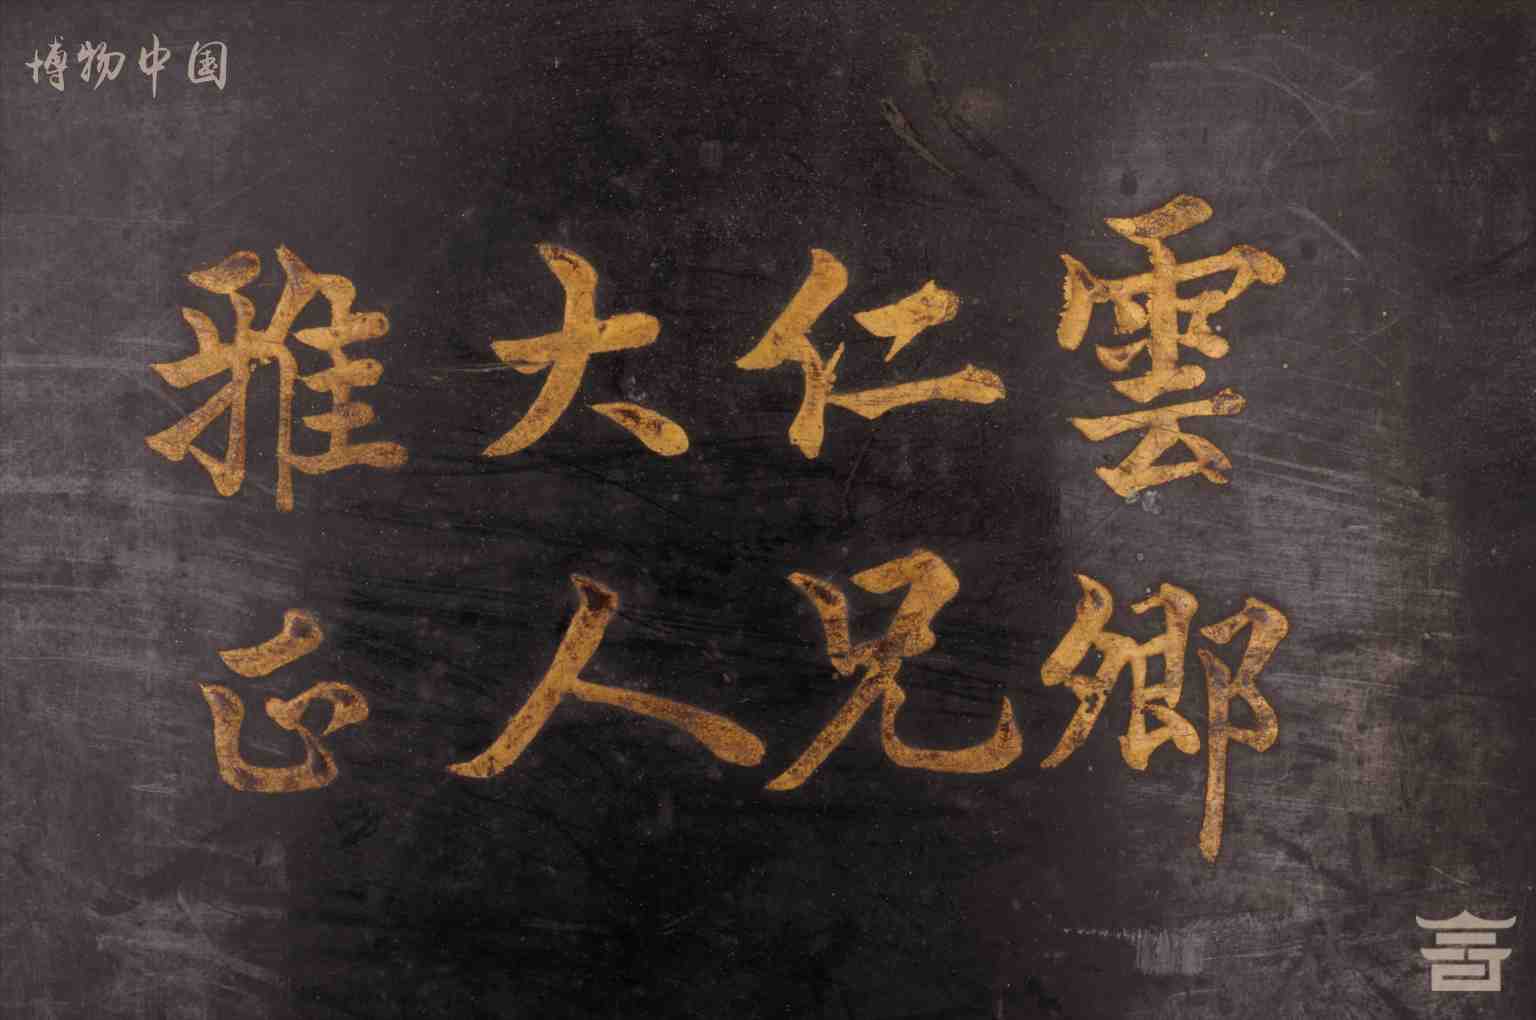 博物中国
雲鄉
仁兄
大人
雅正